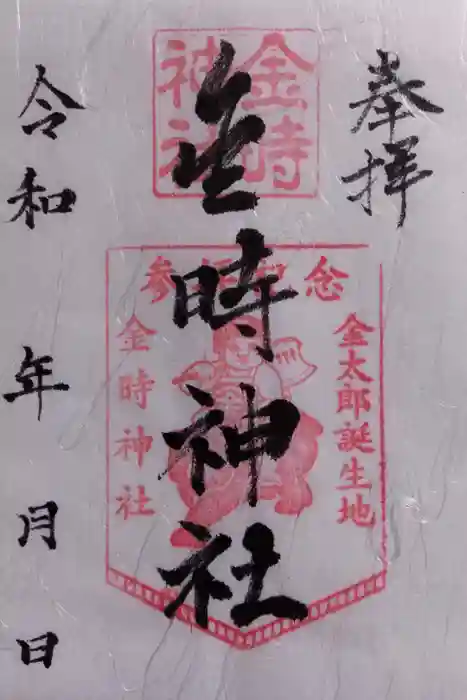 奉拝
金時神社
金時神社
参拝記念
金太郎誕生地
金時神社
令和 年 月 日